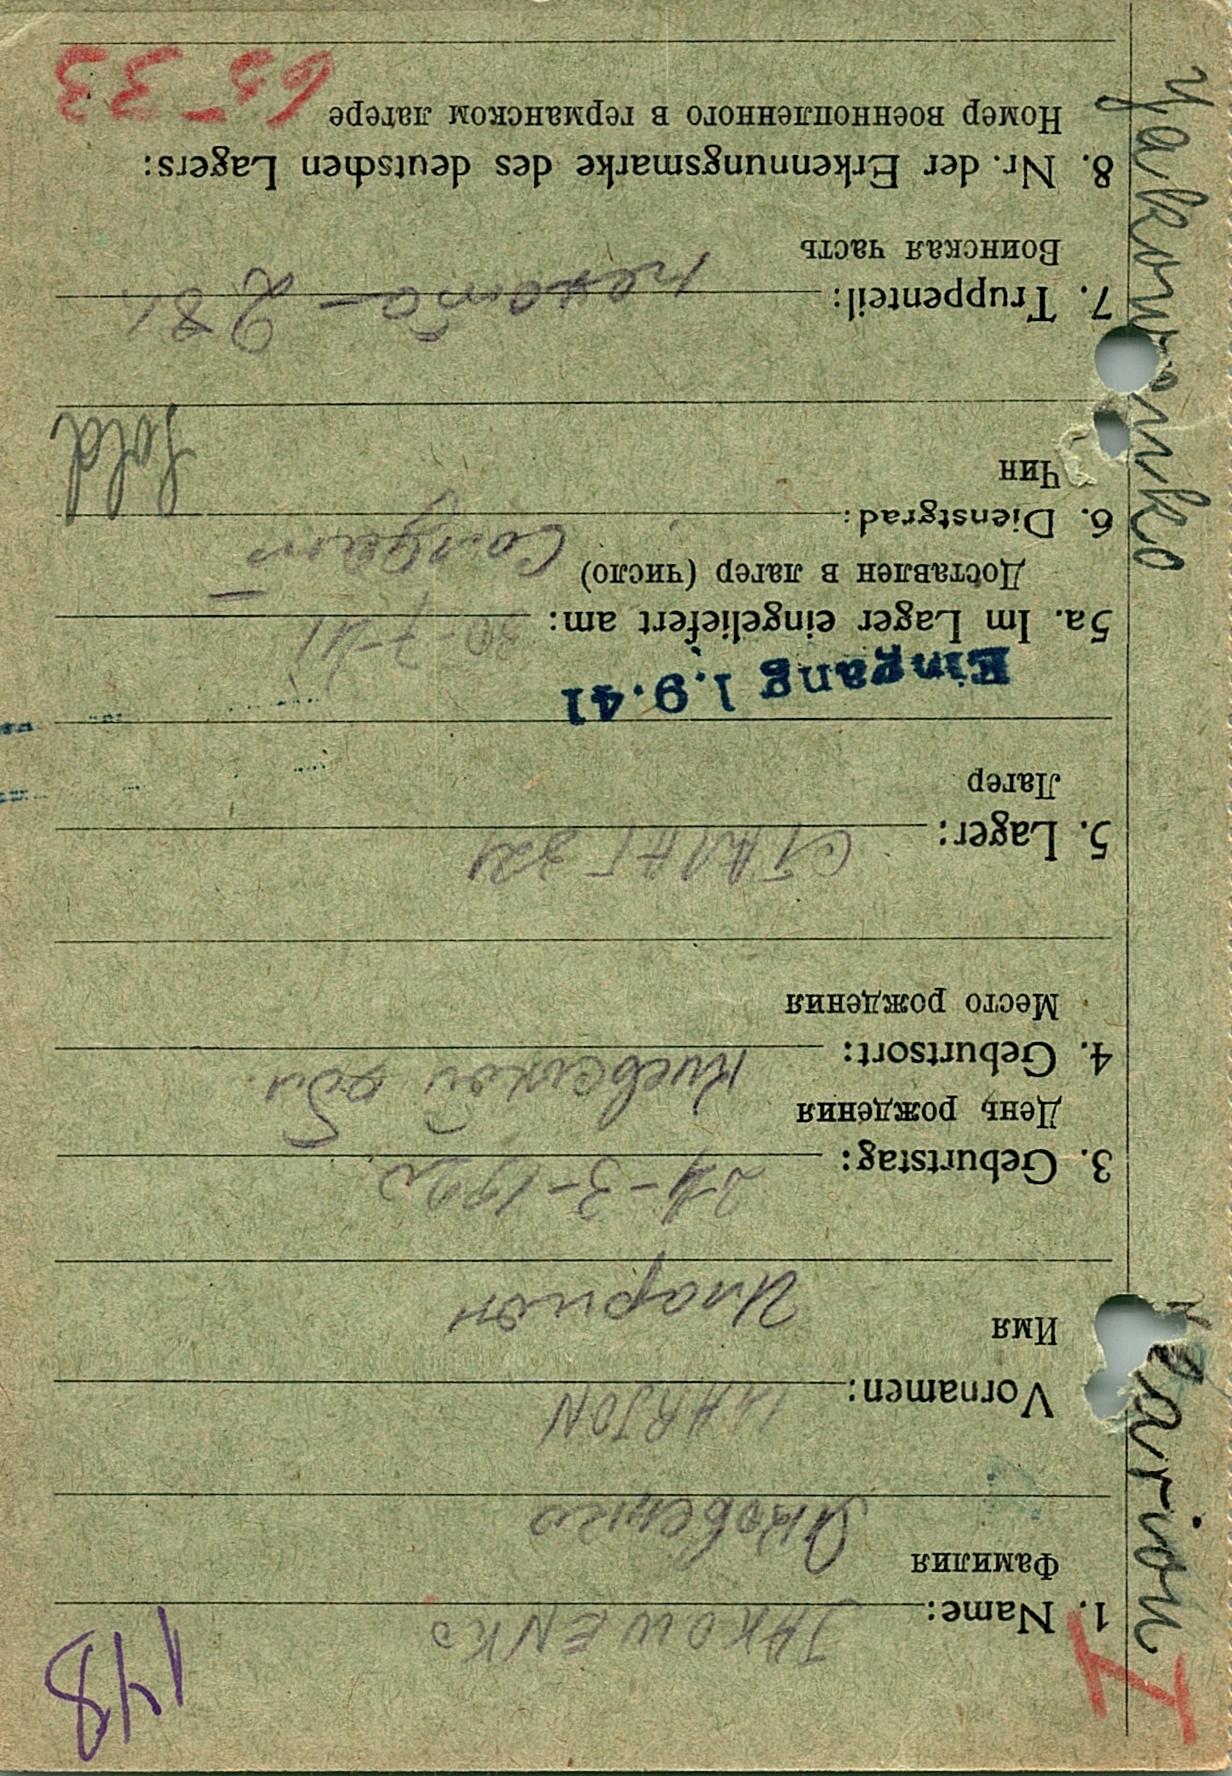 148
I
1. Name: JAKOWENKO
Фамилия Яковенко
Vornamen: ILARJON
Имя Иларион
3. Geburtstag: 21-3-1920
День рождения
4. Geburtsort: Киевской обл
Место рождения
5. Lager: СТАЛАГ
Лагер
Eingang 1.9.41
5a. Im Lager eingeliefert am: 30-7-41
Доставлен в лагер (число)
6. Dienstgrad: Солдат Sold
Чин
7. Truppenteil: пехота —
Воинская часть
8. Nr. der Erkennungsmarke des deutschen Lagers:
Номер военнопленного в германском лагере 6533
Yakowenko